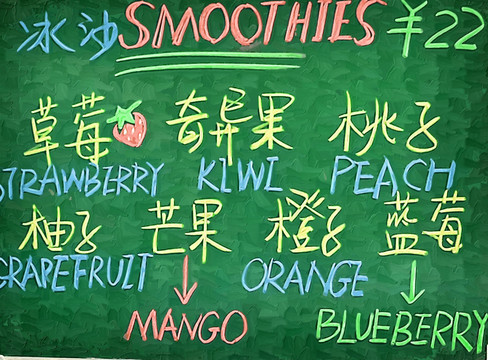 冰沙 SMOOTHIES ¥22
草莓 奇异果 桃子
STRAWBERRY KIWI PEACH
柚子 芒果 橙子 蓝莓
GRAPEFRUIT ORANGE
MANGO BLUEBERRY